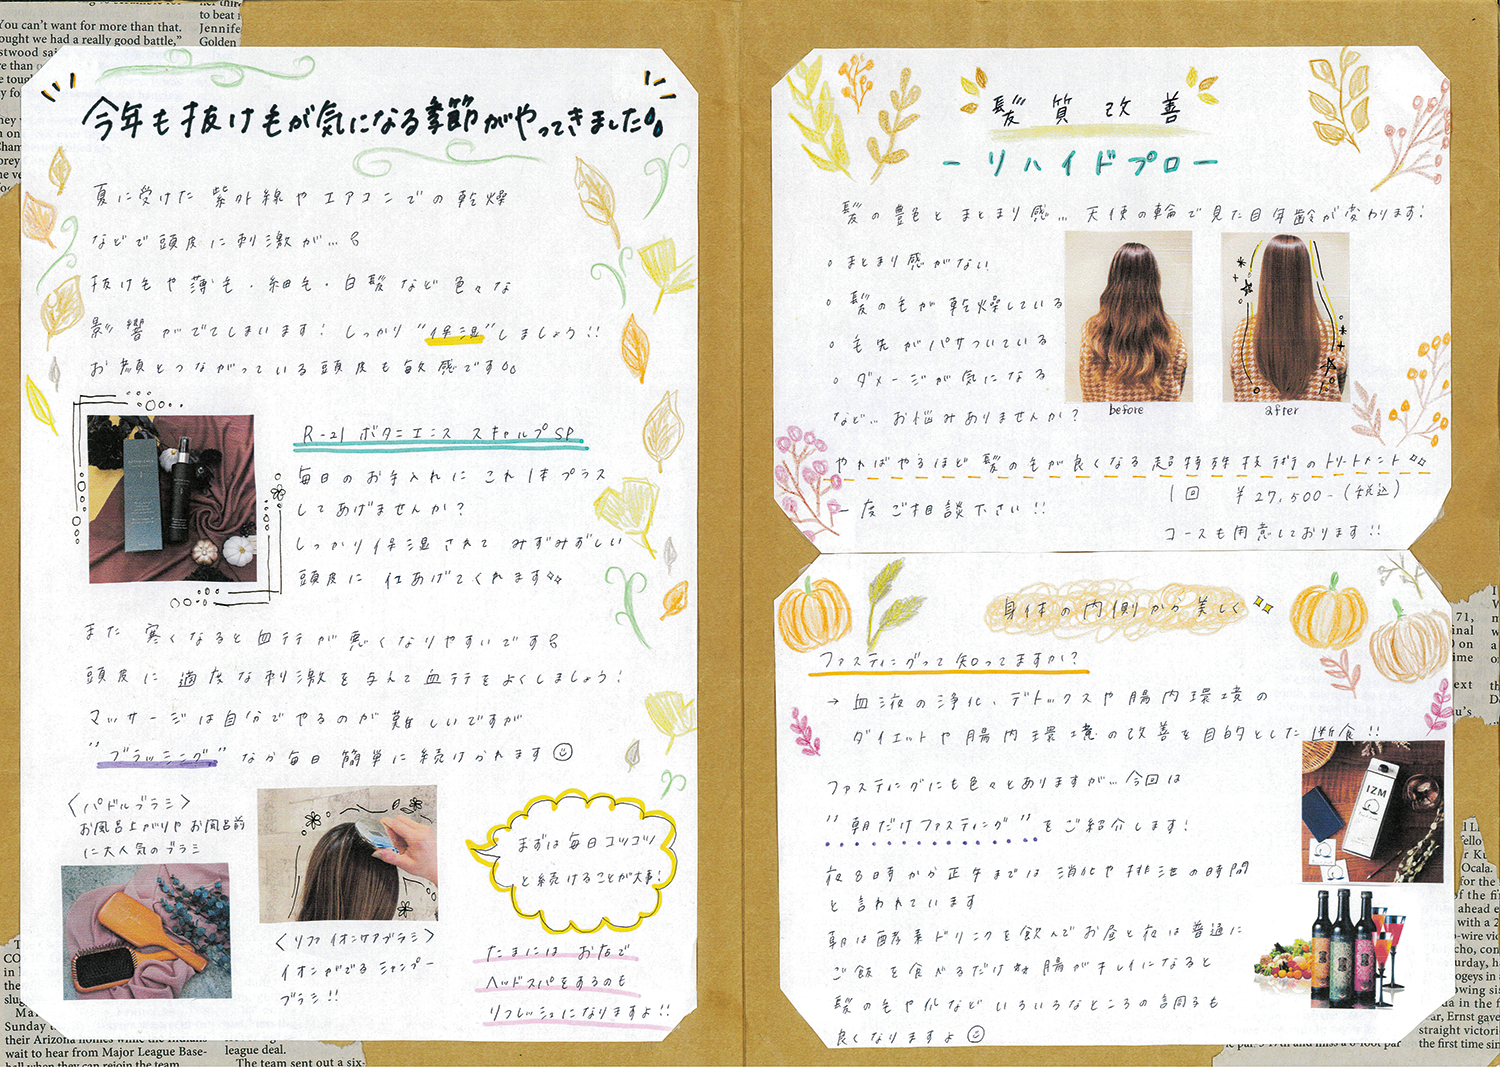 今年も抜け毛が気になる季節がやってきました
夏に受けた 紫外線や エアコンでの乾燥
などで頭皮に刺激が…
抜け毛や薄毛・細毛・白髪など色々な
影響がでてしまいます! しっかり "保湿"しましょう!!
お顔とつながっている頭皮も敏感です
R-21 ボタニエンス スキャルプSP
毎日のお手入れに これ1本プラス
してあげませんか?
しっかり保湿されて みずみずしい
頭皮に 仕あげてくれます
また 寒くなると血行が悪くなりやすいです
頭皮に 適度な刺激を与えて血行をよくしましょう!
マッサージは自分でやるのが難しいですが
"ブラッシング" なら毎日簡単に続けられます
〈パドルブラシ〉
お風呂上がりや お風呂前
に大人気のブラシ
〈リファイオンケアブラシ〉
イオンがでるシャンプー
ブラシ!!
まずは毎日コツコツ
と続けることが大事!
たまには お店で
ヘッドスパをするのも
リフレッシュになりますよ!!
髪質改善
-リハイドプロ-
髪の艶色とまとまり感… 天使の輪で見た目年齢が変わります!
。まとまり感がない
。髪の毛が乾燥している
。毛先がパサついている
。ダメージが気になる
など… お悩みありませんか?
before
after
やればやるほど髪の毛が良くなる超特殊技術のトリートメント
一度ご相談下さい!!
1回 ¥27,500-(税込)
コースも用意しております!!
身体の内側から美しく
ファスティングって知ってますか?
→ 血液の浄化、デトックスや腸内環境の
ダイエットや腸内環境の改善を目的とした断食!!
ファスティングにも色々とありますが… 今回は
"朝だけファスティング"をご紹介します!
夜8時から正午までは消化や排泄の時間
と言われています
朝は酵素ドリンクを飲んでお昼と夜は普通に
ご飯を食べるだけ 腸がキレイになると
髪の毛や肌などいろいろなところの調子も
良くなりますよ
IZM
You can't want for more than that.
ought we had a really good battle,"
Jennife
Golden
their Arizona homes while the Indians
wait to hear from Major League Base-
league deal.
The team sent out a six-
straight victori
the first time sin